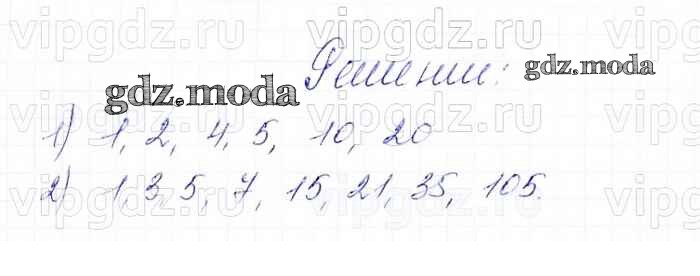 vipgdz.ru vipgdz.ru vipgdz.ru
Решение: gdz.moda
gdz.moda
1) 1, 2, 4, 5, 10, 20
vipgdz.ru vipgdz.ru vipgdz.ru
2) 1, 3, 5, 7, 15, 21, 35, 105.
vipgdz.ru vipgdz.ru vipgdz.ru